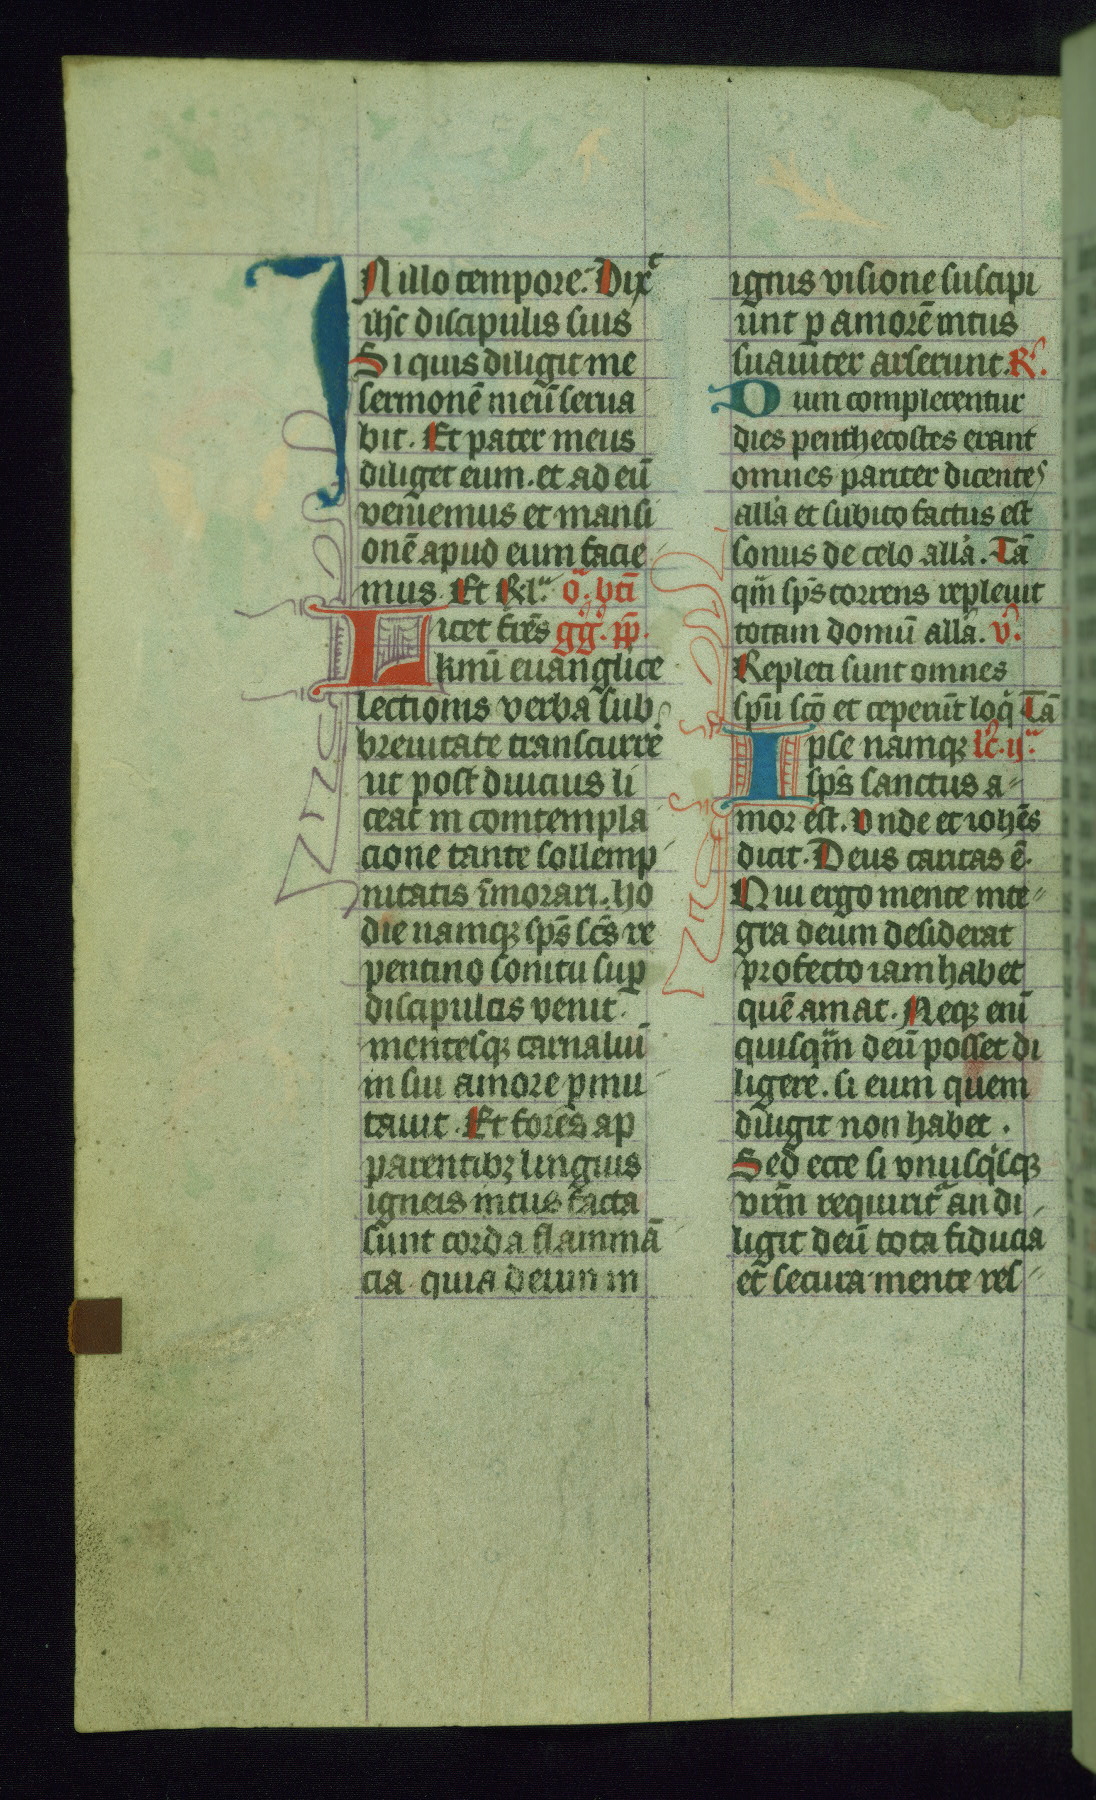 IN illo tempore. Dixᵗ
ihc discipulis suis
Si quis diligit me
sermonē meū serua
bit. Et pater meus
diliget eum. et ad eū
veniemus et mansi
onē apud eum facie
mus. Et Rel. o. bti
Licet frēs gg. pp.
kmi euanglice
lectionis verba sub
breuitate transcurre
ut post diucius li
ceat in comtempla
cione tante sollemp
nitatis īmorari. ho
die namqꝫ spūs scūs re
pentino sonitu suꝑ
discipulos venit.
mentesqꝫ carnaliū
in sui amore ꝑmu
tauit. Et fores ap
parentibꝫ linguis
igneis intus facta
sunt corda flammā
cia quia deum in
ignis visione suscipi
unt ꝑ amorē intus
suauiter arserunt. R.
Dum complerentur
dies penthecostes erant
omnes pariter dicentes
alla et subito factus est
sonus de celo alla. Tā
qm̄ sps torrens repleuit
totam domū alla. v.
Repleti sunt omnes
spū scō et ceperūt loqⁱ Tā
Ipse namqꝫ lc. ij.
sps sanctus a
mor est. vnde et iohēs
dicit. Deus caritas ē.
Qui ergo mente inte
gra deum desiderat
profecto iam habet
quē amat. Neqꝫ eni
quisqm̄ deū posset di
ligere. si eum quem
diligit non habet.
Sed ecce si vnusqⁱsqꝫ
vrm̄ requirit an di
ligit deū tota fiducia
et secura mente res